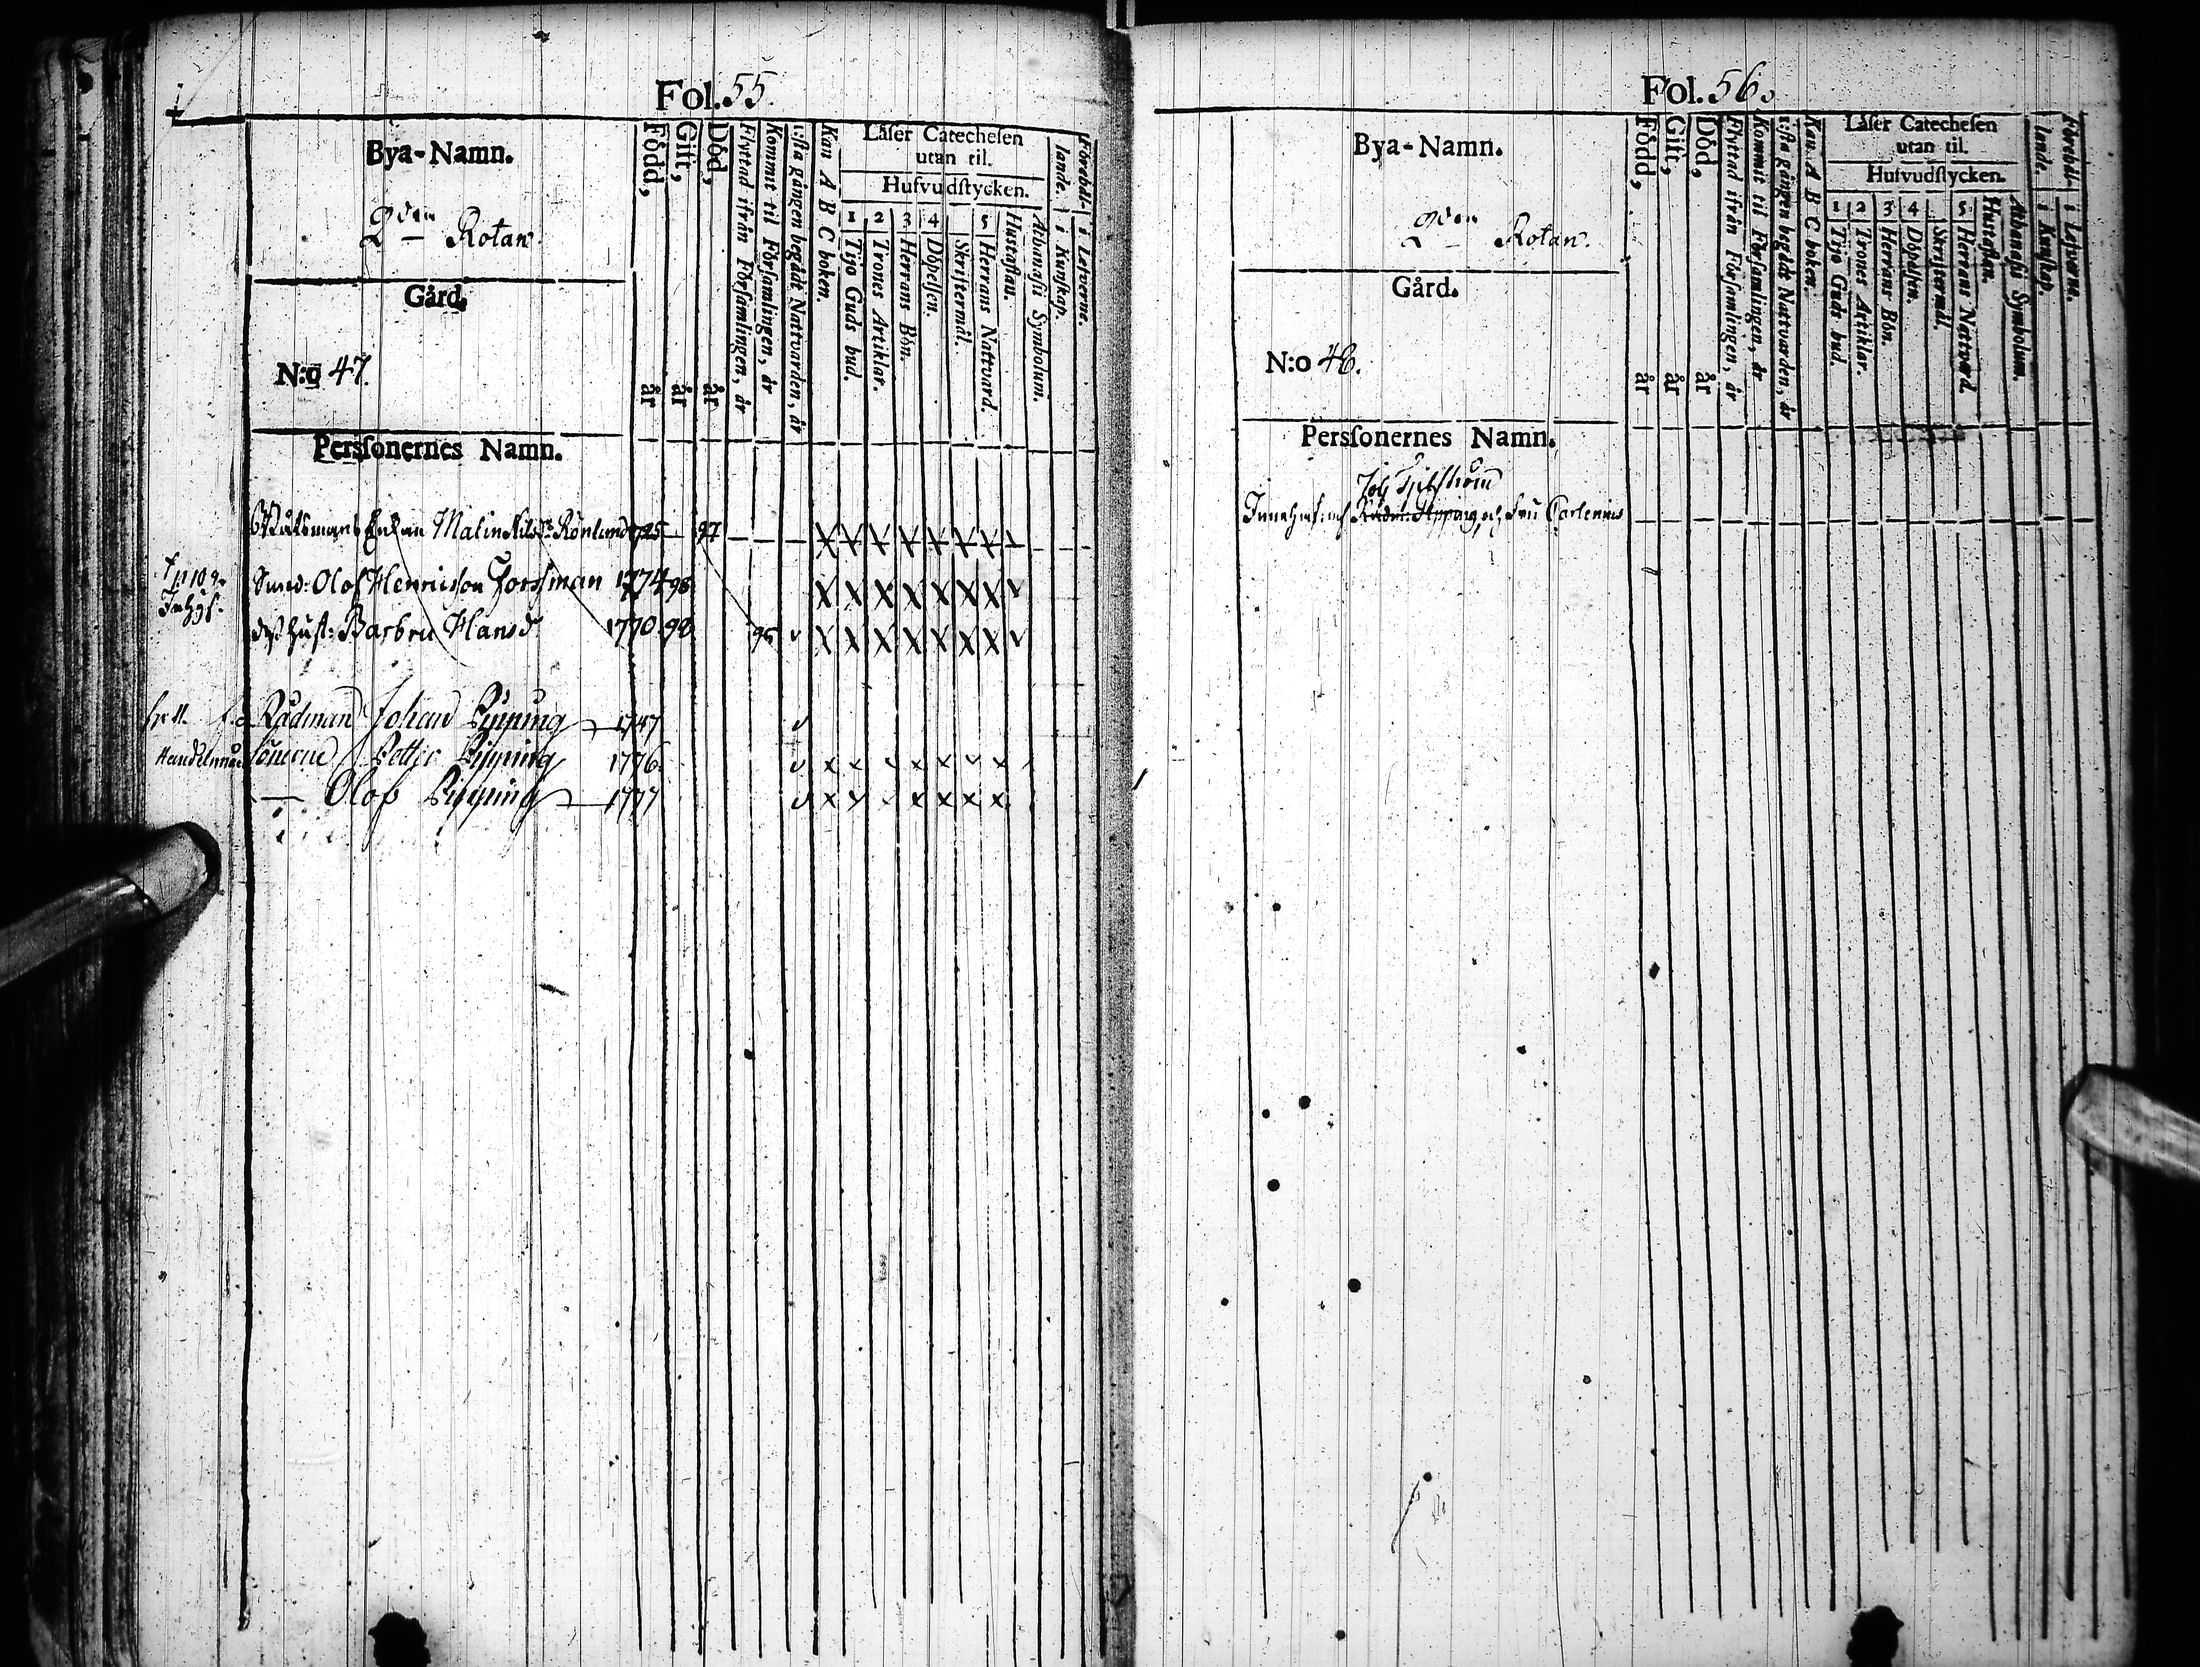 Fol. 55.
Bya-Namn.
2dra Rotan.
Gård.
N:o 47.
Persſonernes Namn.
Född, år
Gift, år
Död, år
Flyttad ifrån Förſamlingen, år
Kommit til Förſamlingen, år
1:ſta gången begådt Nattvarden, år
Kan A B C boken.
Läſer Catecheſen
utan til.
Hufvudſtycken.
1 Tijo Guds bud.
2 Trones Artiklar.
3 Herrans Bön.
4 Döpelſen.
Skriftermål.
5 Herrans Nattvard.
Huſtaflan.
Athanaſii Symbolum.
Förehål-
lande.
i Kunſkap.
i Lefverne.
Båtsmans Enkan Malin Nilsdr Rönlund 1725 97
p 109.
Smed: Olof Henricsson Forssman 1774 98
deß huſt: Barbru Hansdr 1770 98 96
Rådman Johan Pipping 1747
Handelsman Sönerne Petter Pipping 1776
— Olof Pipping 1777
Fol. 56.
Bya-Namn.
2dra Rotan.
Gård.
N:o 48.
Persſonernes Namn.
Född, år
Gift, år
Död, år
Flyttad ifrån Förſamlingen, år
Kommit til Förſamlingen, år
1:ſta gången begådt Nattvarden, år
Kan A B C boken.
Läſer Catecheſen
utan til.
Hufvudſtycken.
1 Tijo Guds bud.
2 Trones Artiklar.
3 Herrans Bön.
4 Döpelſen.
Skriftermål.
5 Herrans Nattvard.
Huſtaflan.
Athanaſii Symbolum.
Förehål-
lande.
i Kunſkap.
i Lefverne.
Innehafs af Rådm: Pipping och Fru Carlenius